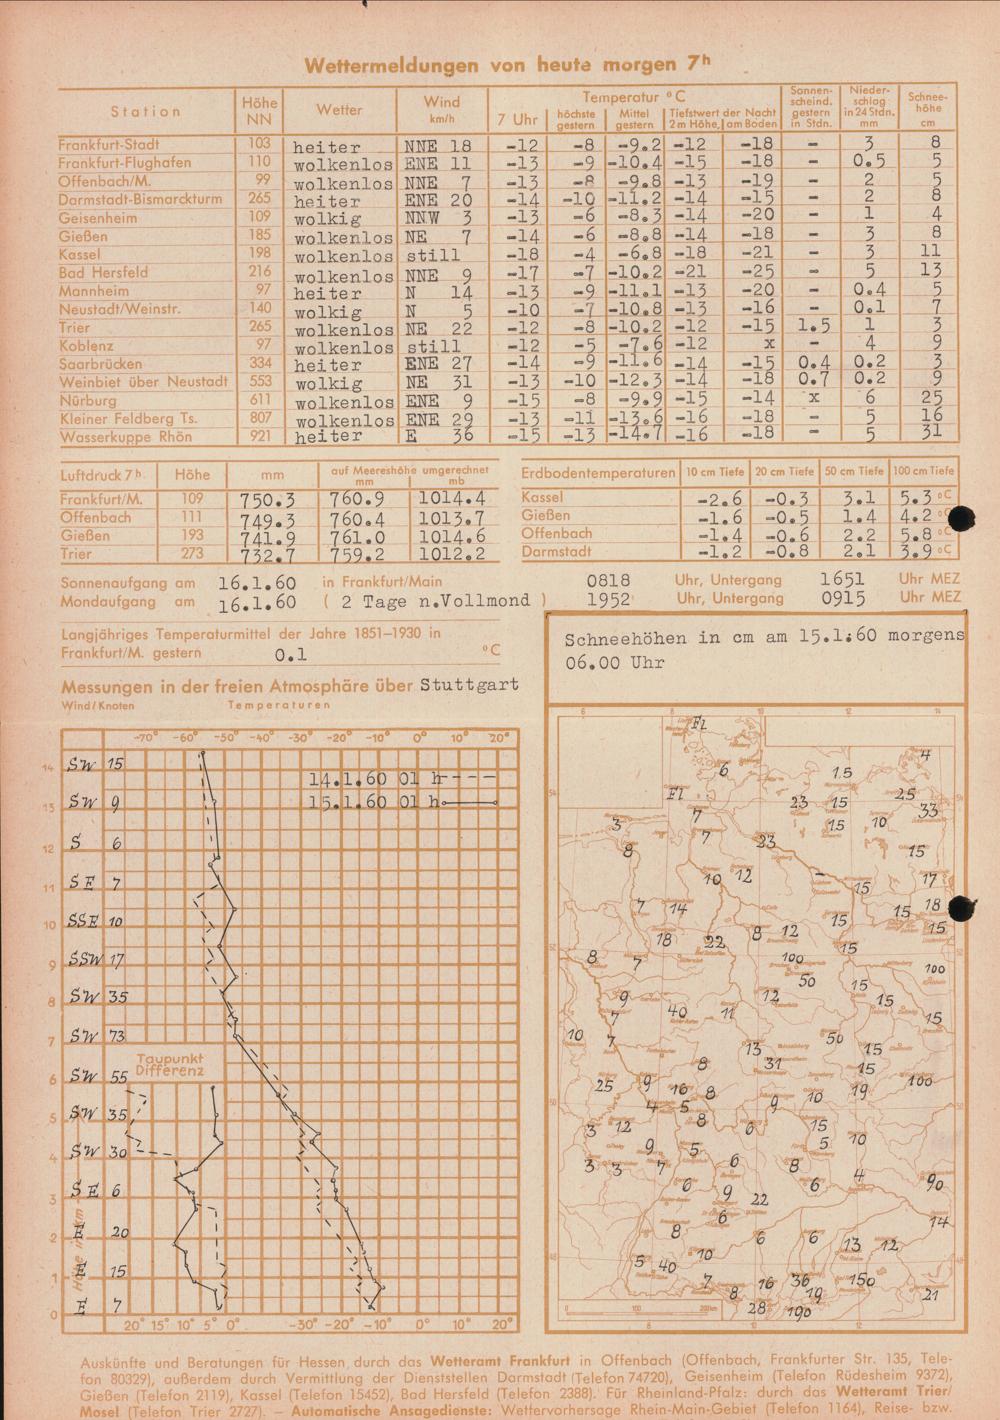 Wettermeldungen von heute morgen 7h
Station Höhe NN Wetter Wind km/h Temperatur °C Sonnenscheind. gestern in Stdn. Niederschlag in 24 Stdn. mm Schneehöhe cm
7 Uhr höchste gestern Mittel gestern Tiefstwert der Nacht 2 m Höhe, am Boden
Frankfurt-Stadt 103 heiter NNE 18 -12 -8 -9.2 -12 -18 - 3 8
Frankfurt-Flughafen 110 wolkenlos ENE 11 -13 -9 -10.4 -15 -18 - 0.5 5
Offenbach/M. 99 wolkenlos NNE 7 -13 -8 -9.8 -13 -19 - 2 5
Darmstadt-Bismarckturm 265 heiter ENE 20 -14 -10 -11.2 -14 -15 - 2 8
Geisenheim 109 wolkig NNW 3 -13 -6 -8.3 -14 -20 - 1 4
Gießen 185 wolkenlos NE 7 -14 -6 -8.8 -14 -18 - 3 8
Kassel 198 wolkenlos still -18 -4 -6.8 -18 -21 - 3 11
Bad Hersfeld 216 wolkenlos NNE 9 -17 -7 -10.2 -21 -25 - 5 13
Mannheim 97 heiter N 14 -13 -9 -11.1 -13 -20 - 0.4 5
Neustadt/Weinstr. 140 wolkig N 5 -10 -7 -10.8 -13 -16 - 0.1 7
Trier 265 wolkenlos NE 22 -12 -8 -10.2 -12 -15 1.5 1 3
Koblenz 97 wolkenlos still -12 -5 -7.6 -12 x - 4 9
Saarbrücken 334 heiter ENE 27 -14 -9 -11.6 -14 -15 0.4 0.2 3
Weinbiet über Neustadt 553 wolkig NE 31 -13 -10 -12.3 -14 -18 0.7 0.2 9
Nürburg 611 wolkenlos ENE 9 -15 -8 -9.9 -15 -14 x 6 25
Kleiner Feldberg Ts. 807 wolkenlos ENE 29 -13 -11 -13.6 -16 -18 - 5 16
Wasserkuppe Rhön 921 heiter E 36 -15 -13 -14.7 -16 -18 - 5 31
Luftdruck 7h Höhe mm auf Meereshöhe umgerechnet mm mb
Frankfurt/M. 109 750.3 760.9 1014.4
Offenbach 111 749.3 760.4 1013.7
Gießen 193 741.9 761.0 1014.6
Trier 273 732.7 759.2 1012.2
Erdbodentemperaturen 10 cm Tiefe 20 cm Tiefe 50 cm Tiefe 100 cm Tiefe
Kassel -2.6 -0.3 3.1 5.3 °C
Gießen -1.6 -0.5 1.4 4.2 °C
Offenbach -1.4 -0.6 2.2 5.8 °C
Darmstadt -1.2 -0.8 2.1 3.9 °C
Sonnenaufgang am 16.1.60 in Frankfurt/Main 0818 Uhr, Untergang 1651 Uhr MEZ
Mondaufgang am 16.1.60 ( 2 Tage n.Vollmond ) 1952 Uhr, Untergang 0915 Uhr MEZ
Langjähriges Temperaturmittel der Jahre 1851-1930 in
Frankfurt/M. gestern 0.1 °C
Messungen in der freien Atmosphäre über Stuttgart
Wind/Knoten Temperaturen
-70° -60° -50° -40° -30° -20° -10° 0° 10° 20°
14.1.60 01 h
15.1.60 01 h
14 SW 15
13 SW 9
12 S 6
11 SE 7
10 SSE 10
9 SSW 17
8 SW 35
7 SW 73
Taupunkt
Differenz
6 SW 55
5 SW 35
4 SW 30
3 SE 6
2 E 20
1 E 15
0 E 7
Höhe in km
20° 15° 10° 5° 0° -30° -20° -10° 0° 10° 20°
Schneehöhen in cm am 15.1.60 morgens
06.00 Uhr
6 8 10 12 14
Fl
6 1.5 4
Fl 23 15 25 33
3 7 15 10
8 7 23 15
10 12 - 15 17
7 14 15 15 18
18 22 8 12 15 15
8 7 100 50 100
9 12 15 15
7 40 11 15
10 7 13 50 15
8 31 15
25 9 16 8 10 19 100
4 5 9
3 12 8 6 15 5 10
9 5
3 3 7 6 8 4
6 9 22 6 90
6 14
8 6 6 13 12
5 40 10
7 16 36 150
8 19 21
28 190
0 100 200km
8 10 12
Auskünfte und Beratungen für Hessen durch das Wetteramt Frankfurt in Offenbach (Offenbach, Frankfurter Str. 135, Tele-
fon 80329), außerdem durch Vermittlung der Dienststellen Darmstadt (Telefon 74720), Geisenheim (Telefon Rüdesheim 9372),
Gießen (Telefon 2119), Kassel (Telefon 15452), Bad Hersfeld (Telefon 2388). Für Rheinland-Pfalz: durch das Wetteramt Trier/
Mosel (Telefon Trier 2727). — Automatische Ansagedienste: Wettervorhersage Rhein-Main-Gebiet (Telefon 1164), Reise- bzw.